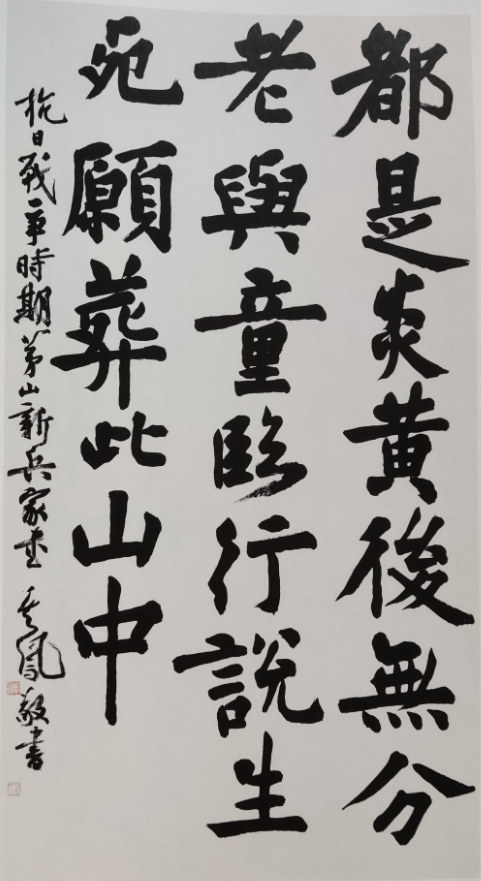 都是炎黄後無分
老與童臨行說生
死願葬此山中
抗日戰爭時期茅山新兵家書 鳳敬書